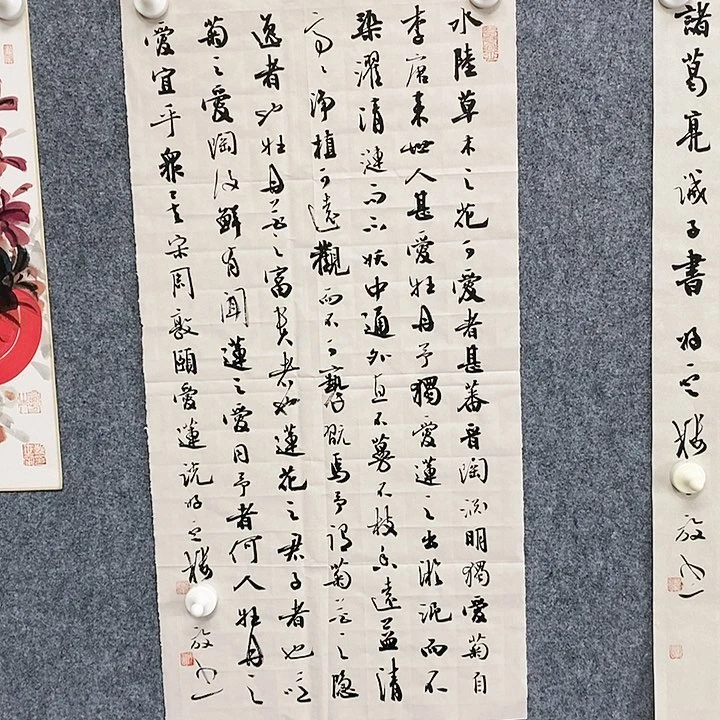 諸葛亮誡子書
水陸草木之花可愛者甚蕃晋陶渊明獨愛菊自
李唐来世人甚愛牡丹予獨愛蓮之出淤泥而不
染濯清漣而不妖中通外直不蔓不枝香遠益清
亭々净植可遠觀而不可褻翫焉予謂菊花之隐
逸者也牡丹花之富貴者也蓮花之君子者也噫
菊之愛陶後鮮有聞蓮之愛同予者何人牡丹之
愛宜乎衆矣宋周敦頤愛蓮説